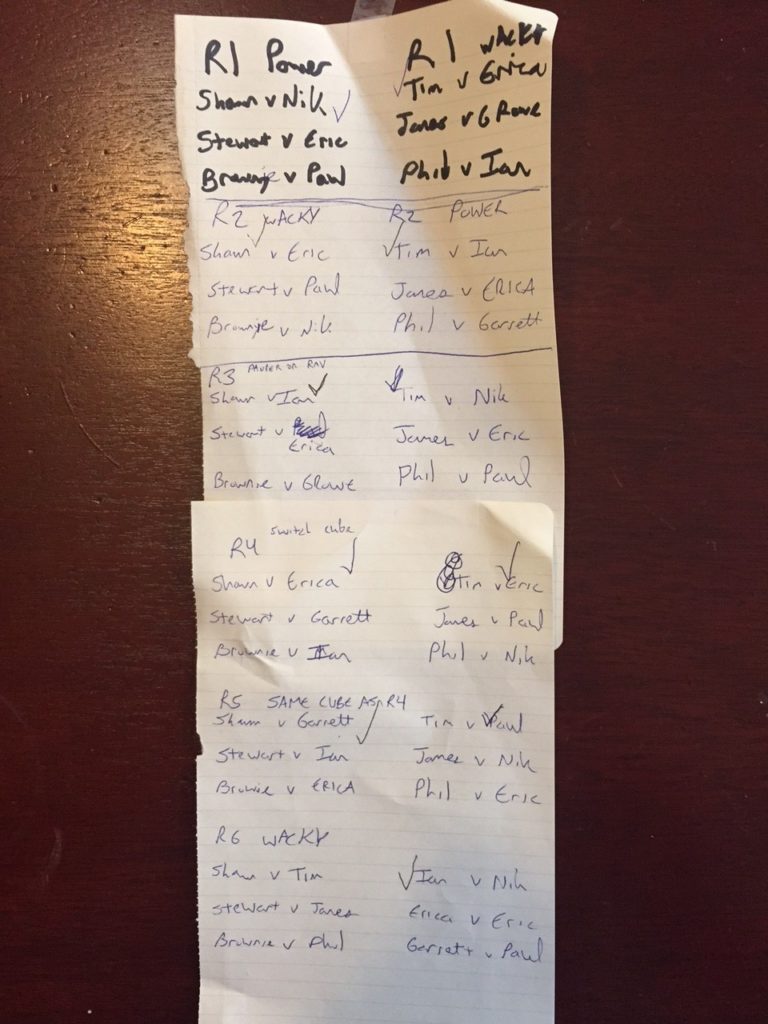 R1 Power
Shawn v Nik
Stewart v Eric
Brownie v Paul
R1 WACKY
Tim v Erica
James v G Rowe
Phil v Ian
R2 WACKY
Shawn v Eric
Stewart v Paul
Brownie v Nik
R2 POWER
Tim v Ian
James v ERICA
Phil v Garrett
R3
Shawn v Ian
Stewart v
Erica
Brownie v
Tim v Nik
James v Eric
Phil v Paul
R4 switch cube
Shawn v Erica
Stewart v Garrett
Brownie v Ian
Tim v Eric
James v Paul
Phil v Nik
R5 SAME CUBE AS R4
Shawn v Garrett
Stewart v Ian
Brownie v ERICA
Tim v Paul
James v Nik
Phil v Eric
R6 WACKY
Shawn v Tim
Stewart v James
Brownie v Phil
Ian v Nik
Erica v Eric
Garrett v Paul